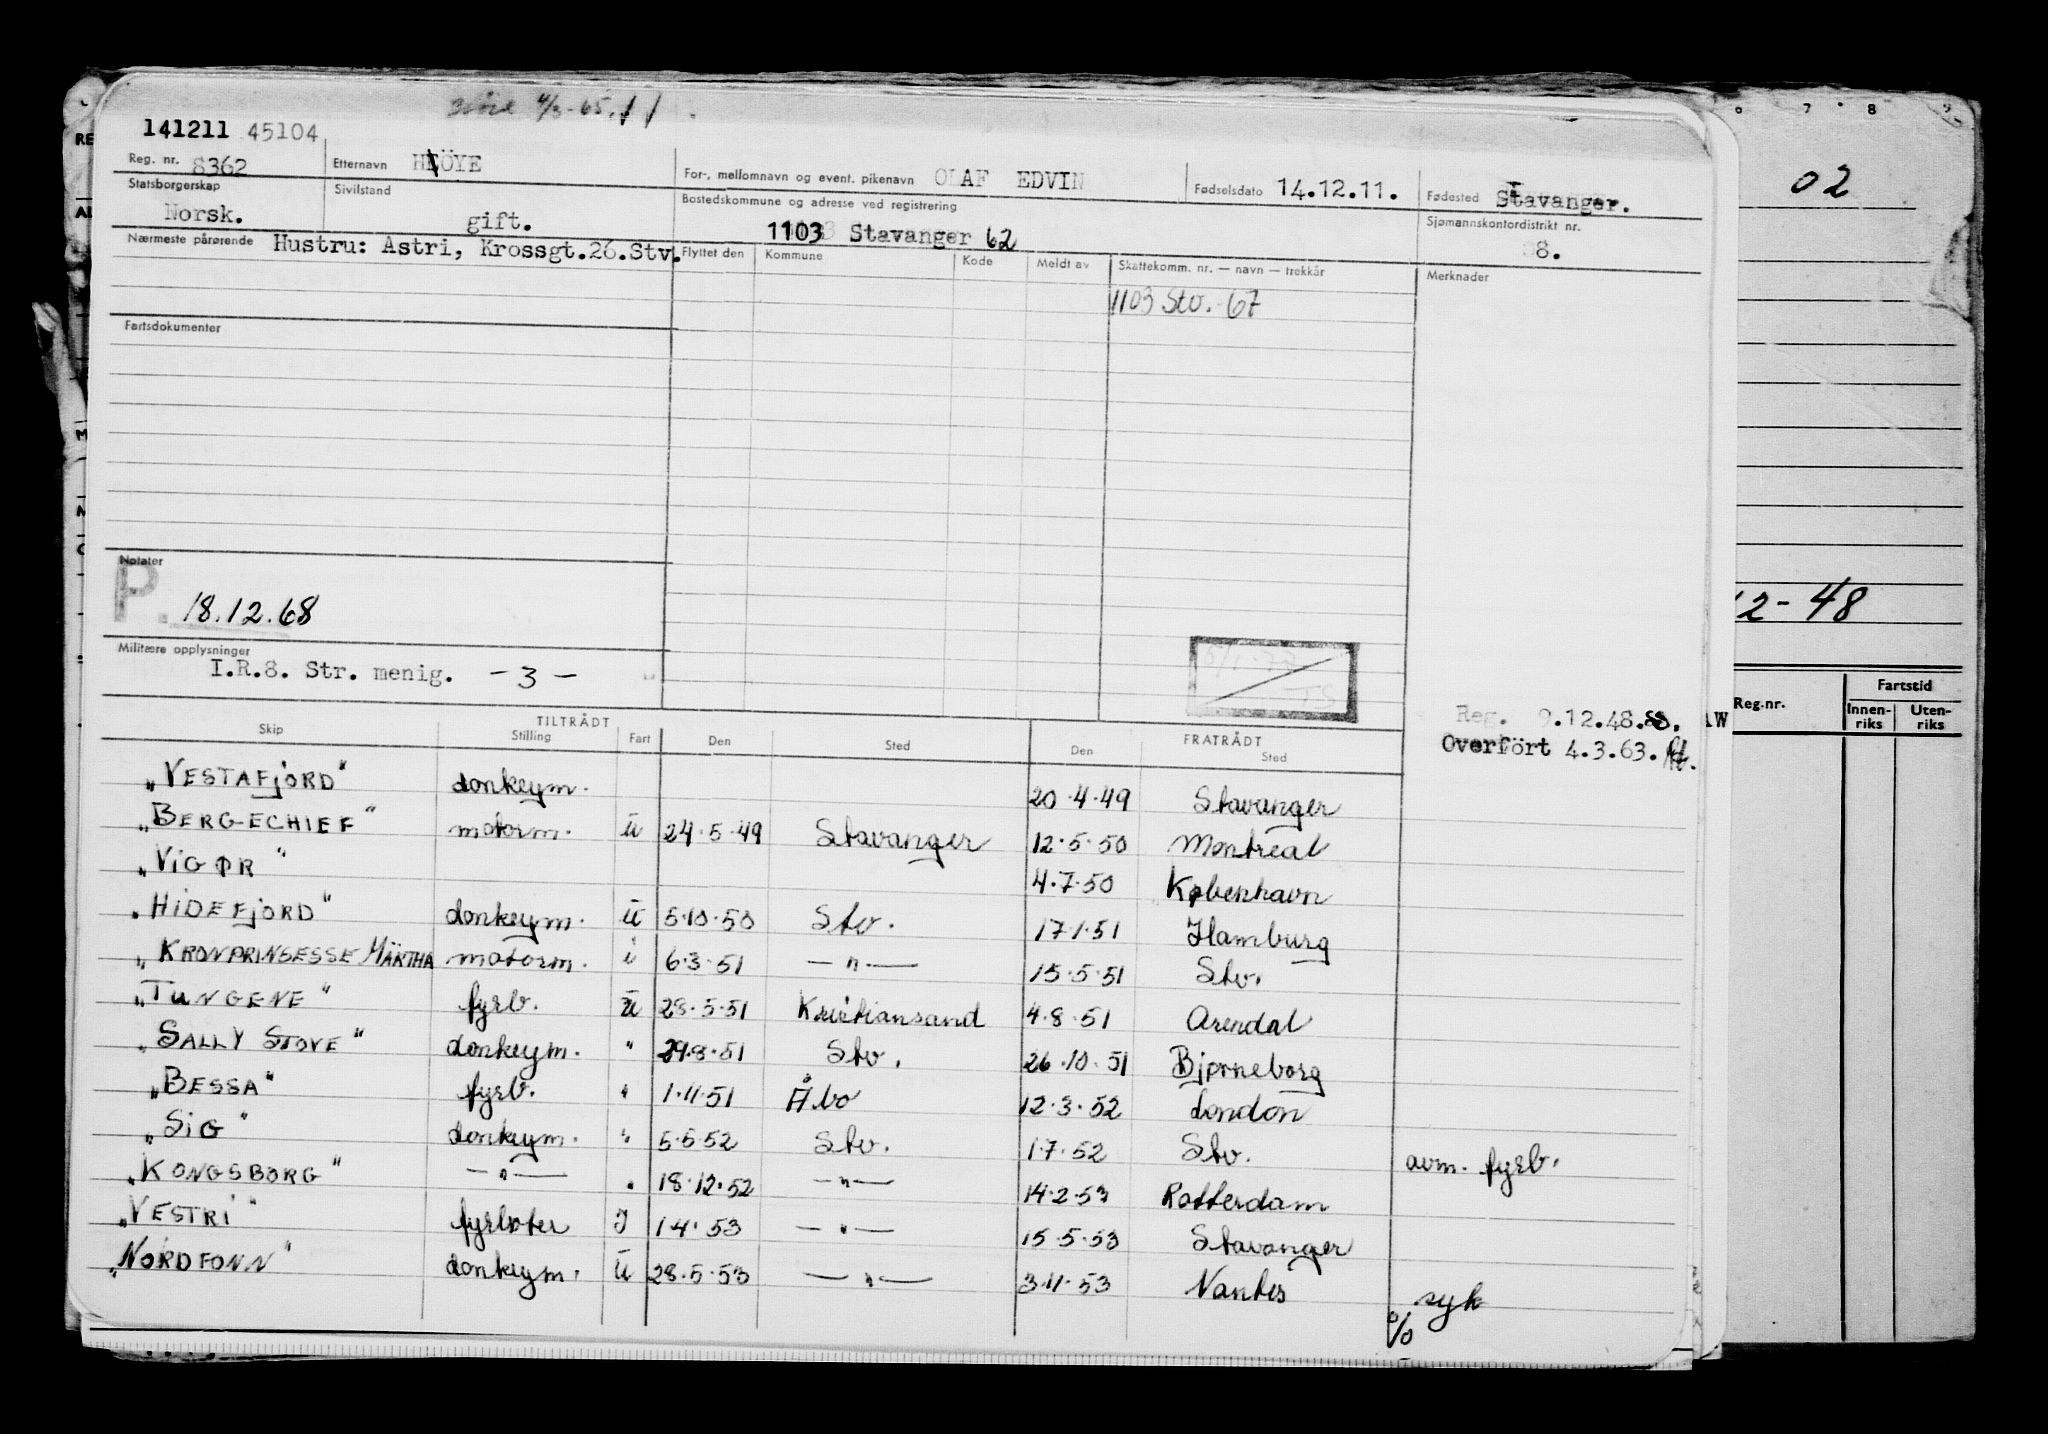 4/3-65.
141211 45104
Reg. nr. 8362 Etternavn HÖYE For-, mellomnavn og event. pikenavn OLAF EDVIN Fødselsdato 14.12.11. Fødested Stavanger.
Statsborgerskap Norsk. Sivilstand gift. Bostedskommune og adresse ved registrering 1103 Stavanger 62 Sjømannskontordistrikt nr. 8.
Nærmeste pårørende Hustru: Astri, Krossgt.26.Stv. Flyttet den Kommune Kode Meldt av Skattekomm. nr. — navn — trekkår Merknader
1103 Stv. - 67
Fartsdokumenter
Notater
P. 18.12.68
Militære opplysninger
I.R.8. Str. menig. - 3 -
Reg. 9.12.48.
Overført 4.3.63.
TILTRÅDT FRATRÅDT
Skip Stilling Fart Den Sted Den Sted
"VESTAFJORD" donkeym. 20.4.49 Stavanger
"BERGECHIEF" motorm. u 24.5.49 Stavanger 12.5.50 Montreal
"VIGØR" 4.7.50 København
"HIDEFJORD" donkeym. u 5.10.50 Stv. 17.1.51 Hamburg
"KRONPRINSESSE MÄRTHA motorm. i 6.3.51 — " — 15.5.51 Stv.
"TUNGENE" fyrb. u 28.5.51 Kristiansand 4.8.51 Arendal
"SALLY STOVE" donkeym. " 29.8.51 Stv. 26.10.51 Bjørneborg
"BESSA" fyrb. " 1.11.51 Åbo 12.3.52 London
"SIG" donkeym. " 5.5.52 Stv. 1.7.52 Stv. avm. fyrb.
"KONGSBORG" — " — " 18.12.52 — " — 14.2.53 Rotterdam
"VESTRI" fyrbøter I 1.4.53 — " — 15.5.53 Stavanger
"NORDFONN" donkeym. U 28.5.53 — " — 3.11.53 Nantes syk
%
7 8
02
12-48
Reg.nr. Fartstid
Innen-riks Uten-riks